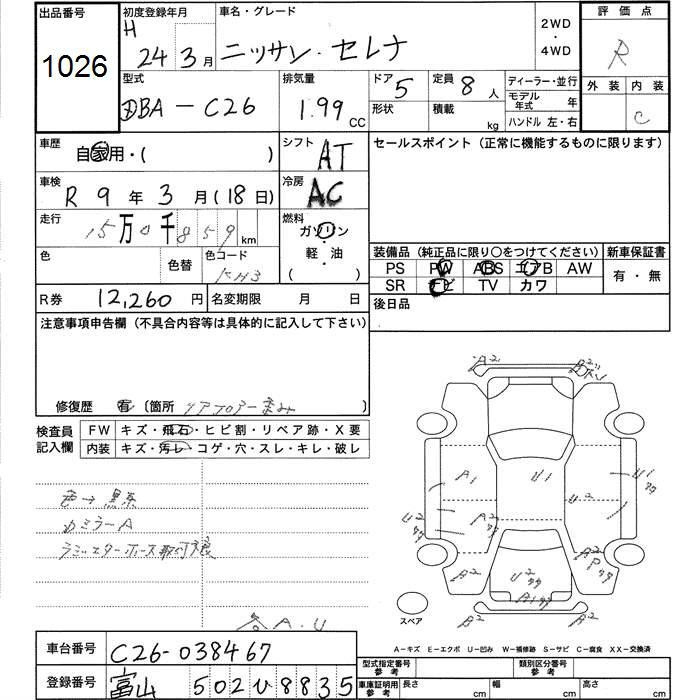 出品番号 初度登録年月 車名・グレード 2WD・4WD 評価点
1026 H 24 3月 ニッサン・セレナ R
外装 内装
C
型式 排気量 ドア 5 定員 8人 ディーラー・並行
DBA-C26 1.99 CC 形状 積載 kg モデル年式 年
ハンドル 左・右
車歴 自家用・( ) シフト AT セールスポイント（正常に機能するものに限ります）
車検 R 9年 3月(18日) 冷房 AC
走行 15万0千859 km 燃料 ガソリン
軽・油
( )
色 色替 色コード KH3
装備品（純正品に限り○をつけてください） 新車保証書
PS PW ABS エアB AW 有・無
SR ナビ TV カワ
R券 12,260円 名変期限 月 日 後日品
注意事項申告欄（不具合内容等は具体的に記入して下さい）
修復歴 有〔箇所 リアフロアー歪み 〕
検査員記入欄 FW キズ・飛石・ヒビ割・リペア跡・X要
内装 キズ・汚レ・コゲ・穴・スレ・キレ・破レ
色→黒系
カミラーA
ラジエターホース取付
A.U
A2
A1 U1 U2 U1
U2
A2 U2 A2
A2 A2
スペア
A-キズ E-エクボ U-凹み W-補修跡 S-サビ C-腐食 XX-交換済
車台番号 C26-038467
登録番号 富山 502 ひ 8835
型式指定番号 参考 類別区分番号 参考
車庫証明用 参考 長さ cm 幅 cm 高さ cm